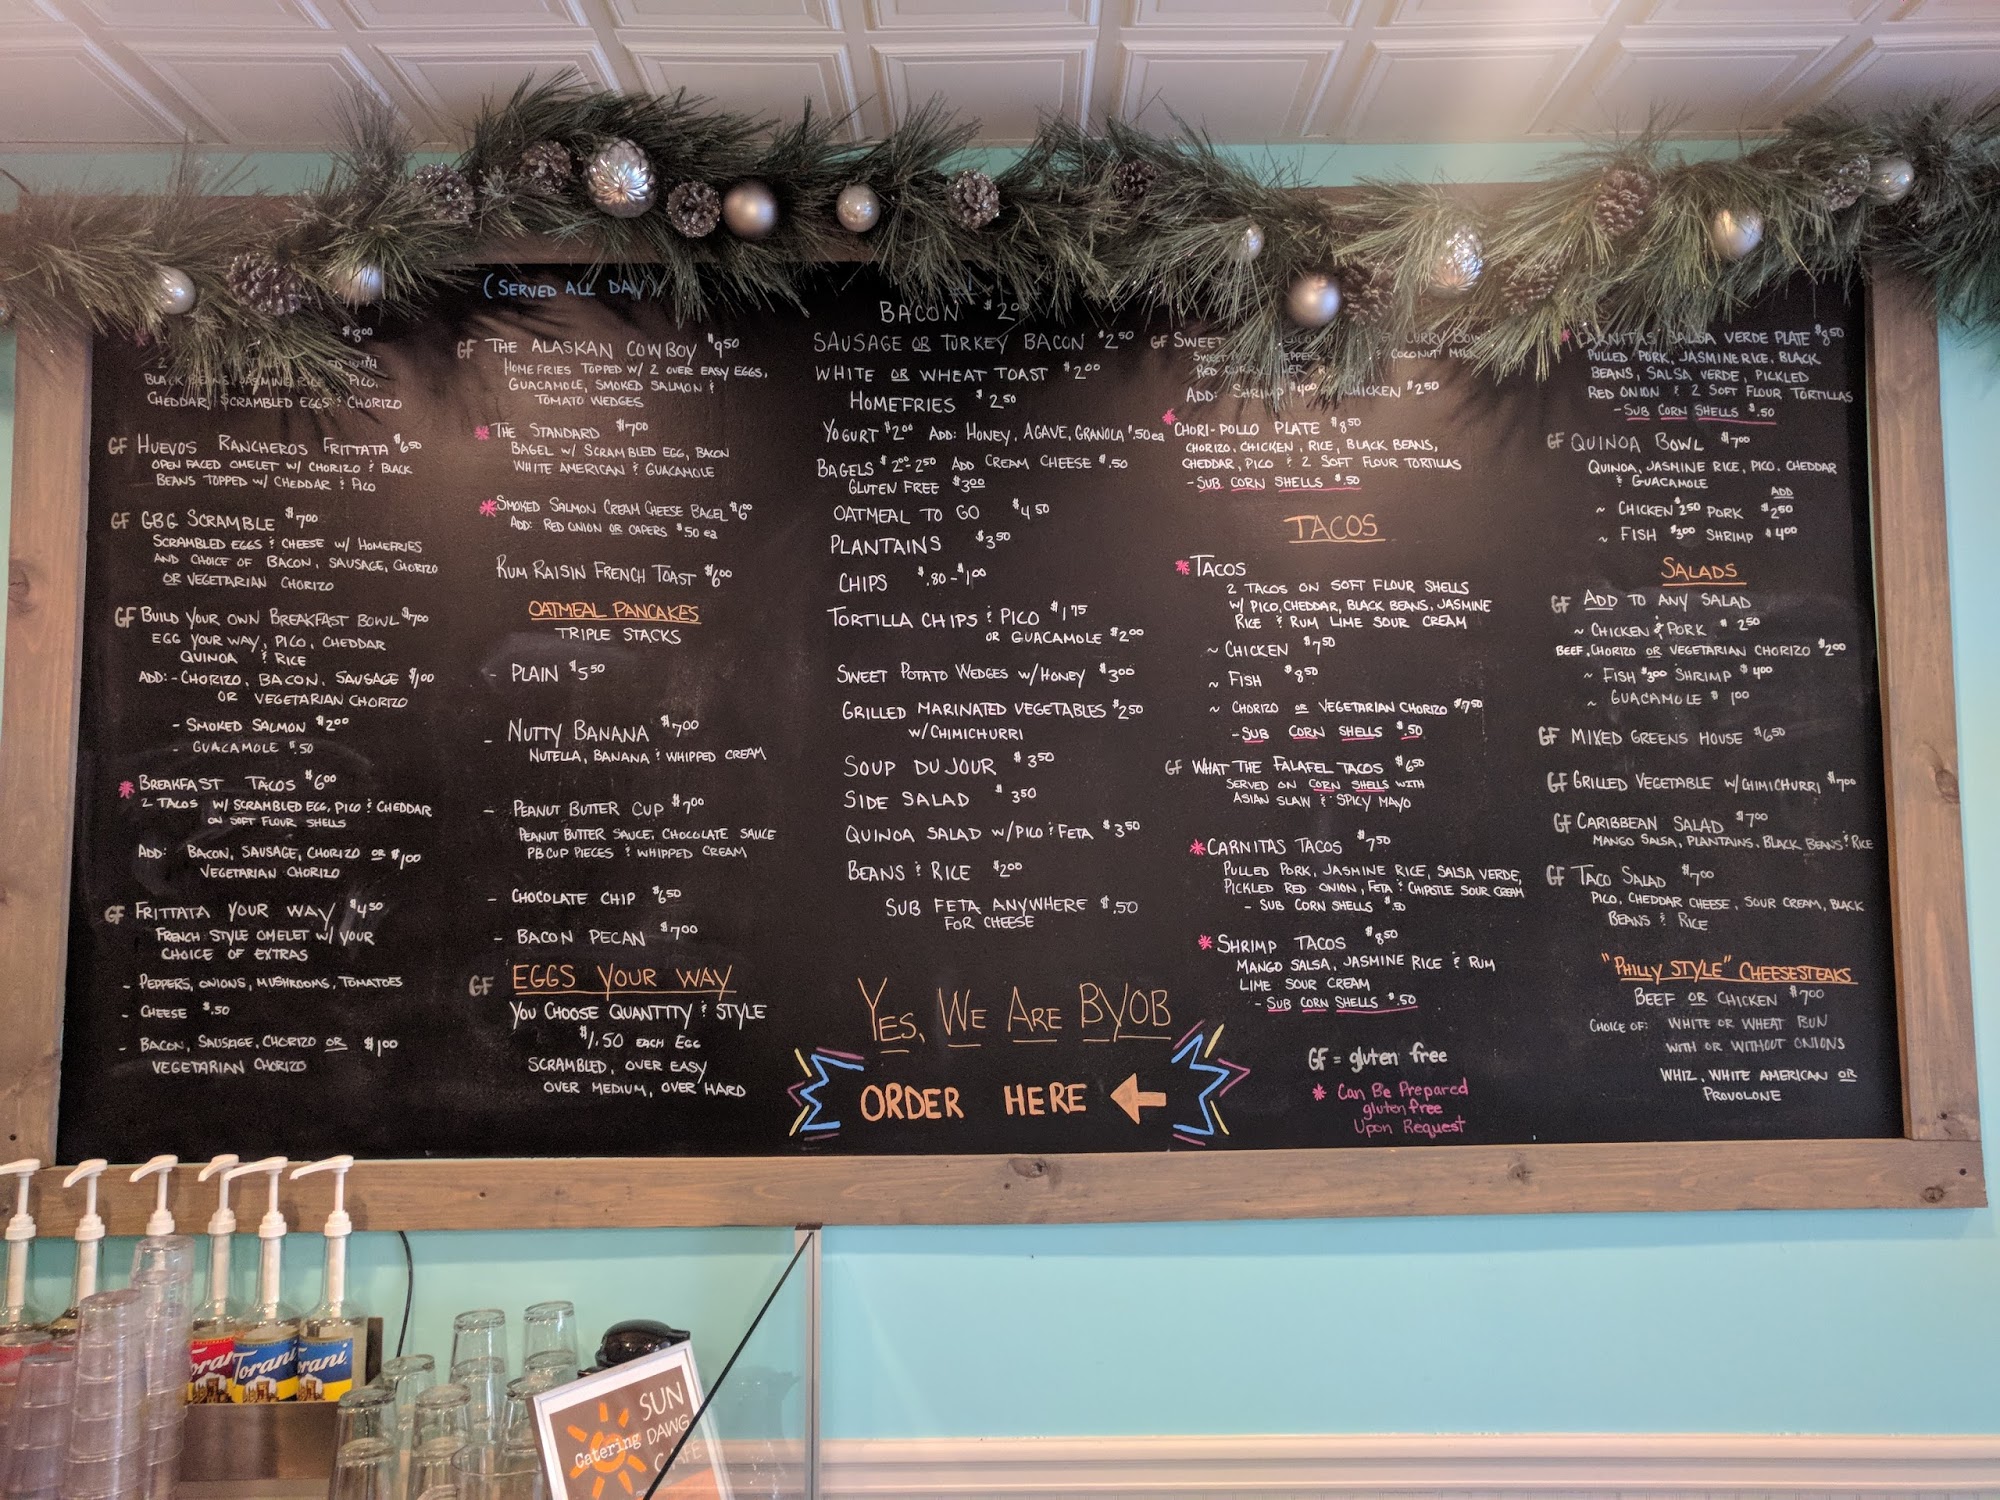 (SERVED ALL DAY)
$8.00
BLACK BEANS, JASMINE RICE, PICO,
CHEDDAR, SCRAMBLED EGGS & CHORIZO
GF HUEVOS RANCHEROS FRITTATA $6.50
OPEN FACED OMELET W/ CHORIZO & BLACK
BEANS TOPPED W/ CHEDDAR & PICO
GF GBG SCRAMBLE $7.00
SCRAMBLED EGGS & CHEESE W/ HOMEFRIES
AND CHOICE OF BACON, SAUSAGE, CHORIZO
OR VEGETARIAN CHORIZO
GF BUILD YOUR OWN BREAKFAST BOWL $7.00
EGG YOUR WAY, PICO, CHEDDAR
QUINOA & RICE
ADD: - CHORIZO, BACON, SAUSAGE $1.00
OR VEGETARIAN CHORIZO
- SMOKED SALMON $2.00
- GUACAMOLE $.50
* BREAKFAST TACOS $6.00
2 TACOS W/ SCRAMBLED EGG, PICO & CHEDDAR
ON SOFT FLOUR SHELLS
ADD: BACON, SAUSAGE, CHORIZO OR $1.00
VEGETARIAN CHORIZO
GF FRITTATA YOUR WAY $4.50
FRENCH STYLE OMELET W/ YOUR
CHOICE OF EXTRAS
- PEPPERS, ONIONS, MUSHROOMS, TOMATOES
- CHEESE $.50
- BACON, SAUSAGE, CHORIZO OR $1.00
VEGETARIAN CHORIZO
GF THE ALASKAN COWBOY $9.50
HOMEFRIES TOPPED W/ 2 OVER EASY EGGS,
GUACAMOLE, SMOKED SALMON &
TOMATO WEDGES
* THE STANDARD $7.00
BAGEL W/ SCRAMBLED EGG, BACON
WHITE AMERICAN & GUACAMOLE
* SMOKED SALMON CREAM CHEESE BAGEL $6.00
ADD: RED ONION OR CAPERS $.50 ea
RUM RAISIN FRENCH TOAST $6.00
OATMEAL PANCAKES
TRIPLE STACKS
- PLAIN $5.50
- NUTTY BANANA $7.00
NUTELLA, BANANA & WHIPPED CREAM
- PEANUT BUTTER CUP $7.00
PEANUT BUTTER SAUCE, CHOCOLATE SAUCE
PB CUP PIECES & WHIPPED CREAM
- CHOCOLATE CHIP $6.50
- BACON PECAN $7.00
GF EGGS YOUR WAY
YOU CHOOSE QUANTITY & STYLE
$1.50 EACH EGG
SCRAMBLED, OVER EASY
OVER MEDIUM, OVER HARD
BACON $2.00
SAUSAGE OR TURKEY BACON $2.50
WHITE OR WHEAT TOAST $2.00
HOMEFRIES $2.50
YOGURT $2.00 ADD: HONEY, AGAVE, GRANOLA $.50 ea
BAGELS $2.00-2.50 ADD CREAM CHEESE $.50
GLUTEN FREE $3.00
OATMEAL TO GO $4.50
PLANTAINS $3.50
CHIPS $.80-$1.00
TORTILLA CHIPS & PICO $1.75
OR GUACAMOLE $2.00
SWEET POTATO WEDGES W/ HONEY $3.00
GRILLED MARINATED VEGETABLES $2.50
W/ CHIMICHURRI
SOUP DU JOUR $3.50
SIDE SALAD $3.50
QUINOA SALAD W/ PICO & FETA $3.50
BEANS & RICE $2.00
SUB FETA ANYWHERE $.50
FOR CHEESE
YES, WE ARE BYOB
ORDER HERE ←
GF SWEET CURRY BOWL
COCONUT MILK
RED CURRY
ADD: SHRIMP $4.00 CHICKEN $2.50
* CHORI-POLLO PLATE $8.50
CHORIZO, CHICKEN, RICE, BLACK BEANS,
CHEDDAR, PICO & 2 SOFT FLOUR TORTILLAS
- SUB CORN SHELLS $.50
TACOS
* TACOS
2 TACOS ON SOFT FLOUR SHELLS
W/ PICO, CHEDDAR, BLACK BEANS, JASMINE
RICE & RUM LIME SOUR CREAM
~ CHICKEN $7.50
~ FISH $8.50
~ CHORIZO OR VEGETARIAN CHORIZO $7.50
- SUB CORN SHELLS $.50
GF WHAT THE FALAFEL TACOS $6.50
SERVED ON CORN SHELLS WITH
ASIAN SLAW & SPICY MAYO
* CARNITAS TACOS $7.50
PULLED PORK, JASMINE RICE, SALSA VERDE,
PICKLED RED ONION, FETA & CHIPOTLE SOUR CREAM
- SUB CORN SHELLS $.50
* SHRIMP TACOS $8.50
MANGO SALSA, JASMINE RICE & RUM
LIME SOUR CREAM
- SUB CORN SHELLS $.50
GF = gluten free
* Can Be Prepared
gluten free
Upon Request
* CARNITAS SALSA VERDE PLATE $8.50
PULLED PORK, JASMINE RICE, BLACK
BEANS, SALSA VERDE, PICKLED
RED ONION & 2 SOFT FLOUR TORTILLAS
- SUB CORN SHELLS $.50
GF QUINOA BOWL $7.00
QUINOA, JASMINE RICE, PICO, CHEDDAR
& GUACAMOLE
ADD
~ CHICKEN $2.50 PORK $2.50
~ FISH $3.00 SHRIMP $4.00
SALADS
GF ADD TO ANY SALAD
~ CHICKEN & PORK $2.50
BEEF, CHORIZO OR VEGETARIAN CHORIZO $2.00
~ FISH $3.00 SHRIMP $4.00
~ GUACAMOLE $1.00
GF MIXED GREENS HOUSE $6.50
GF GRILLED VEGETABLE W/ CHIMICHURRI $7.00
GF CARIBBEAN SALAD $7.00
MANGO SALSA, PLANTAINS, BLACK BEANS & RICE
GF TACO SALAD $7.00
PICO, CHEDDAR CHEESE, SOUR CREAM, BLACK
BEANS & RICE
"PHILLY STYLE" CHEESESTEAKS
BEEF OR CHICKEN $7.00
CHOICE OF: WHITE OR WHEAT BUN
WITH OR WITHOUT ONIONS
WHIZ, WHITE AMERICAN OR
PROVOLONE
Torani
SUN
DAWG
CAFE
Catering